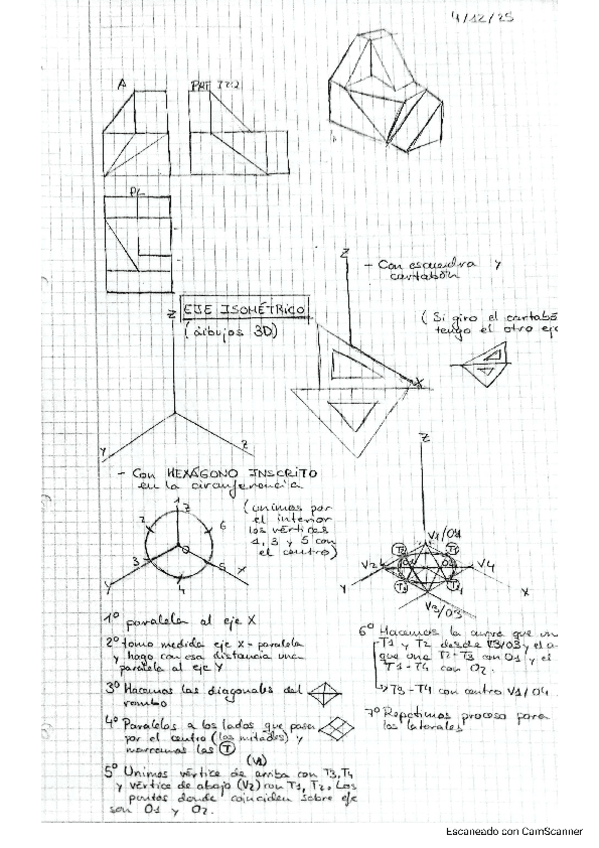 4/12/25
A
PERF IZQ
PL
Z
- Con escuadra y
cartabón
EJE ISOMÉTRICO
(dibujos 3D)
Z
( Si giro el cartabó
tengo el otro eje
X
Y
Z
Z
- Con HEXÁGONO INSCRITO
en la circunferencia
(unimos por
el interior
los vértices
1, 3 y 5 con
el centro)
1
Z
2
6
O
3
5
4
Y
X
V1/O4
T2
T1
V2
V4
Y
X
V3/O3
1º paralela al eje X
2º tomo medida eje X - paralela
y hago con esa distancia una
paralela al eje Y
3º Hacemos las diagonales del
rombo
4º Paralelas a los lados que pasen
por el centro (las mitades) y
marcamos las T
(V1)
5º Unimos vértice de arriba con T3, T4
y vértice de abajo (V2) con T1, T2. Los
puntos donde coinciden sobre eje
son O1 y O2.
6º Hacemos la curva que un
T1 y T2 desde V3/O3 y el a
que une T2-T3 con O1 y el
T1-T4 con O2.
T3-T4 con centro V1/O4
7º Repetimos proceso para
los laterales
Escaneado con CamScanner